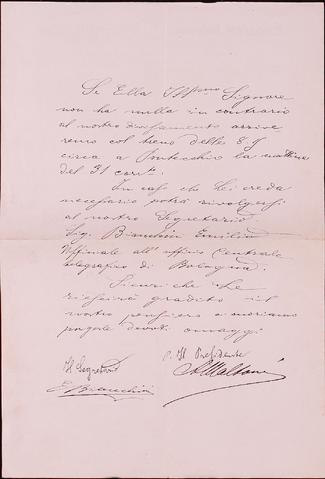 Se Ella Ill.mo Signore
non ha nulla in contrario
al nostro divisamento arrive
remo col treno delle 8.9
circa a Pontecchio la mattina
del 31 corr.
In caso che Lei creda
necessario potrà rivolgersi
al nostro Segretario
Sig. Bianchini Emilio
Uffiziale all'uffizio Centrale
telegrafico di Bologna.
Sicuri che Le
riescirà gradito il
nostro pensiero
porgerle devoti omaggi
Il Segretario
E. Bianchini
p. Il Presidente